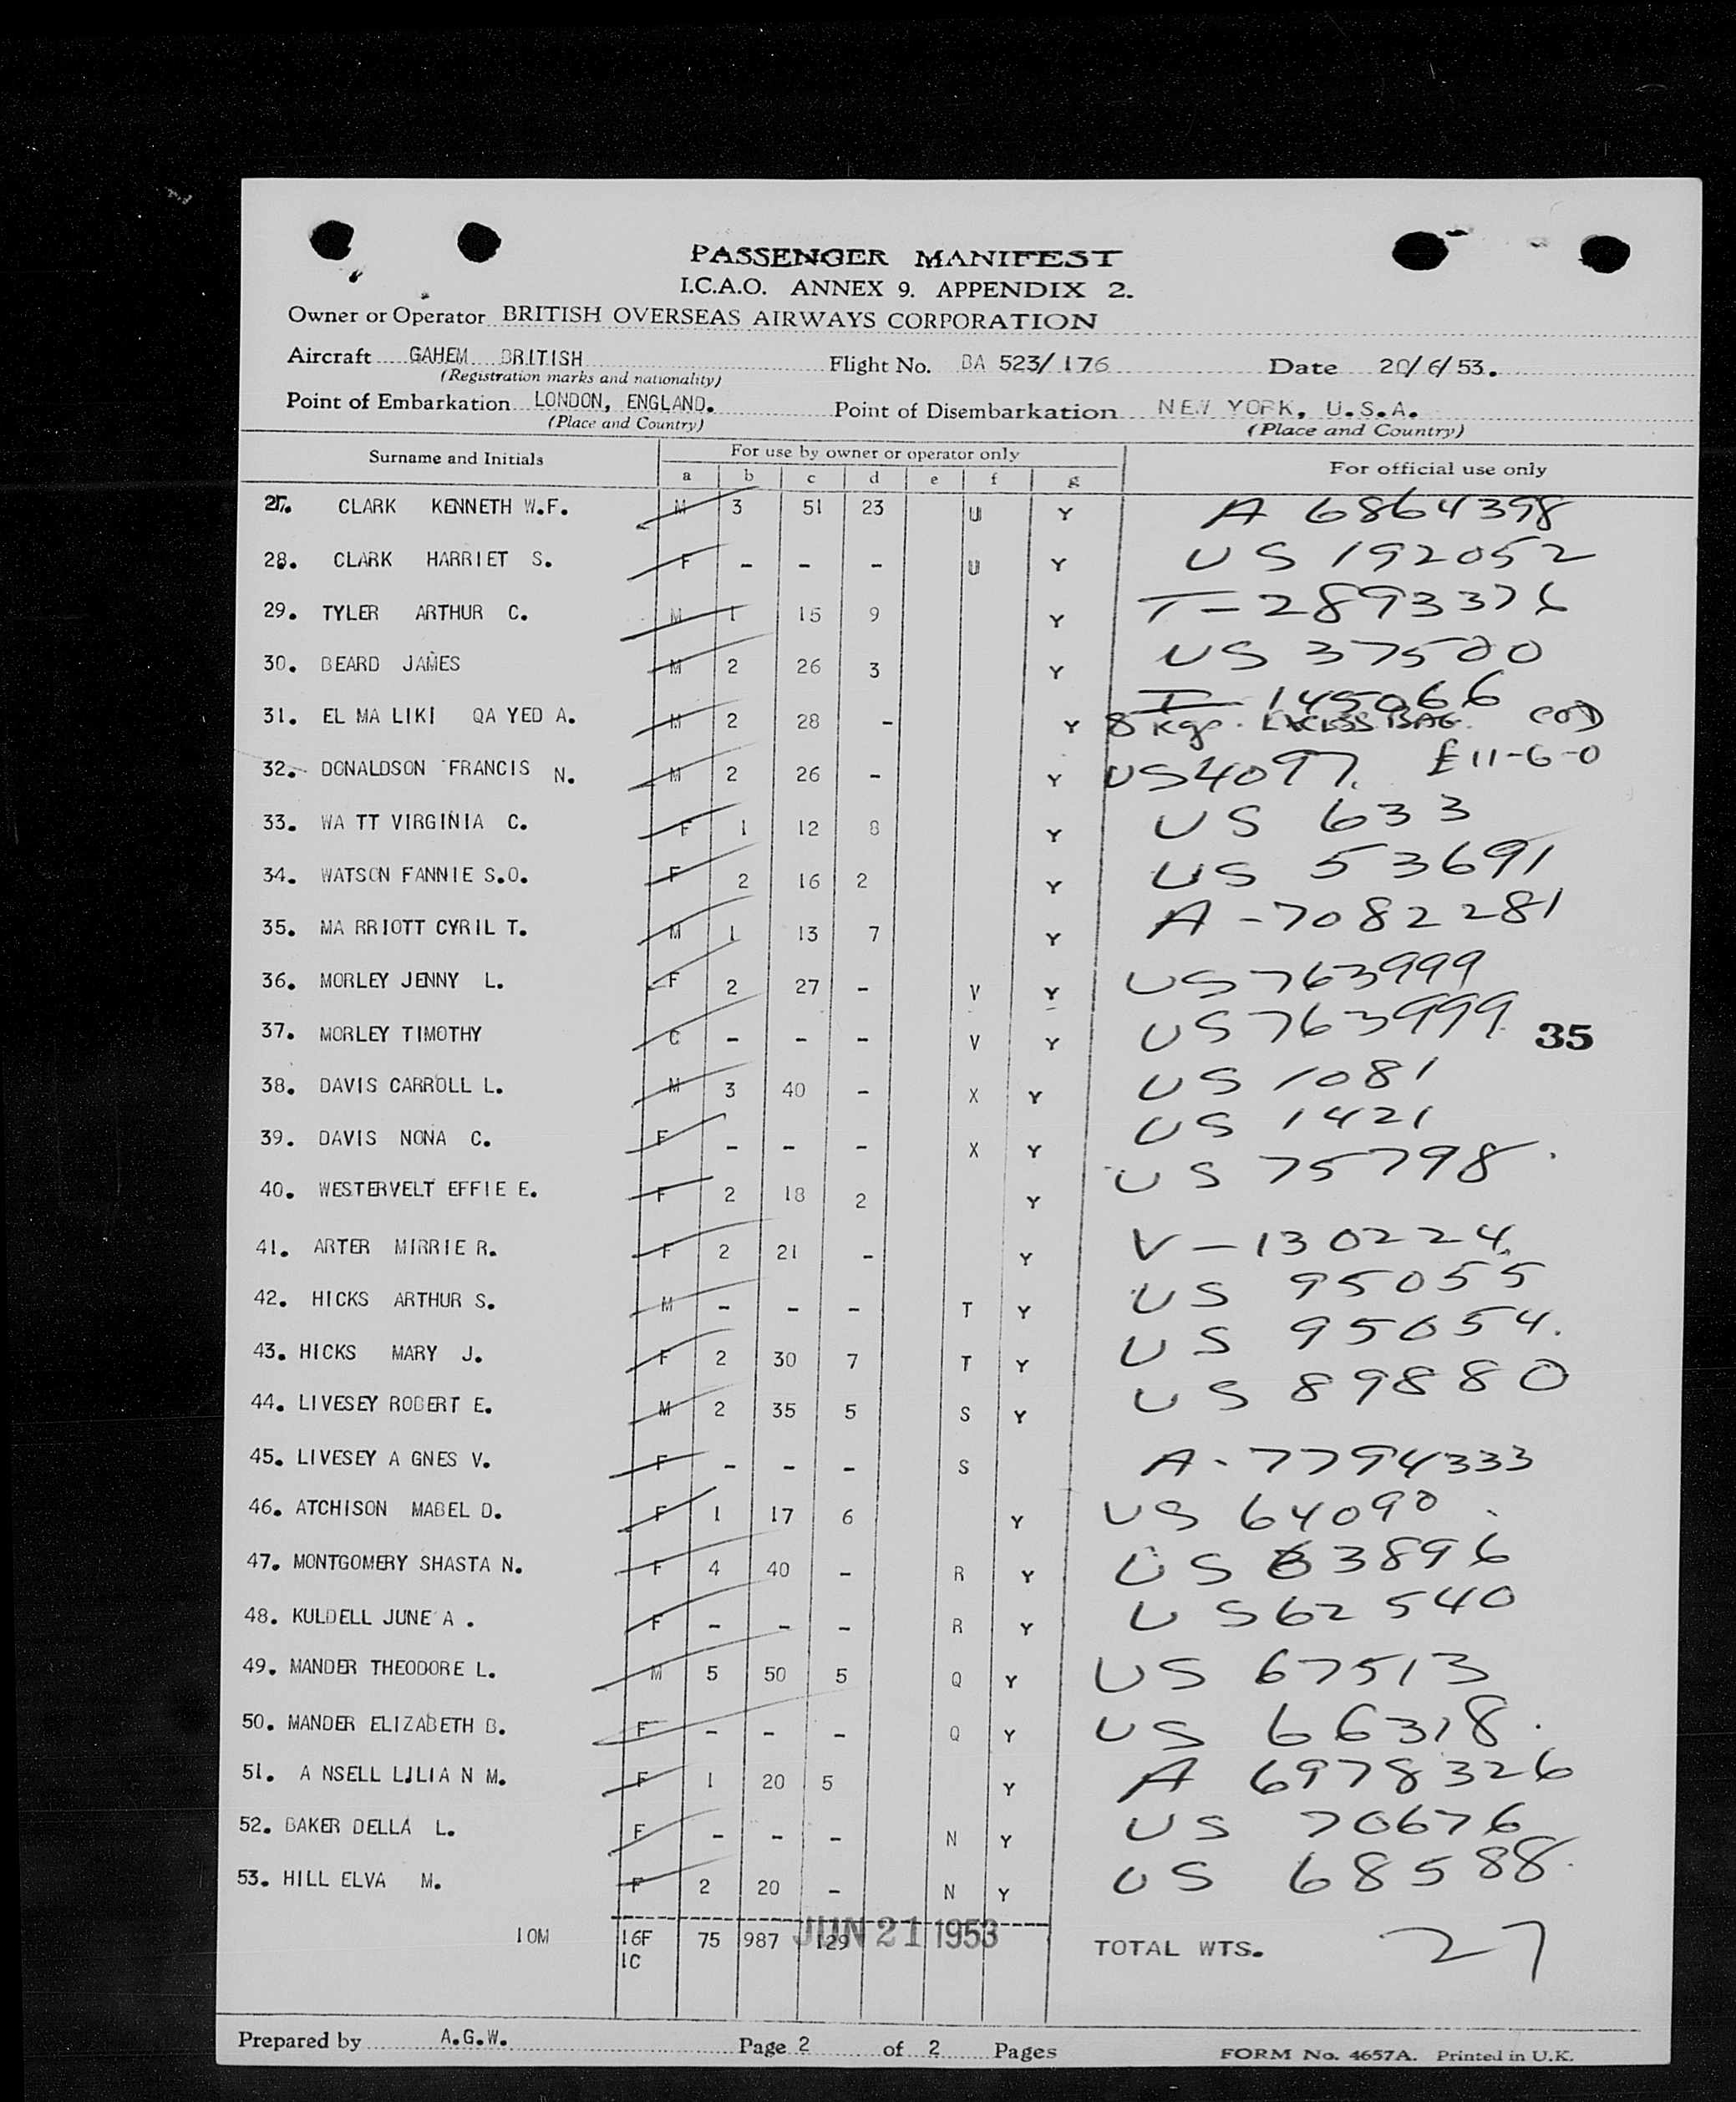 PASSENGER MANIFEST
I.C.A.O. ANNEX 9. APPENDIX 2.
Owner or Operator BRITISH OVERSEAS AIRWAYS CORPORATION
Aircraft GAHEM BRITISH Flight No. BA 523/176 Date 20/6/53.
(Registration marks and nationality)
Point of Embarkation LONDON, ENGLAND. Point of Disembarkation NEW YORK, U.S.A.
(Place and Country) (Place and Country)
Surname and Initials For use by owner or operator only For official use only
a b c d e f g
27. CLARK KENNETH W.F. M 3 51 23 U Y A 6864398
28. CLARK HARRIET S. F - - - U Y US 192052
29. TYLER ARTHUR C. M 1 15 9 Y T-2893376
30. BEARD JAMES M 2 26 3 Y US 37500
I-145066
31. EL MA LIKI QA YED A. M 2 28 - Y 8 Kgs. EXCESS BAG. COD
£11-6-0
32. DONALDSON FRANCIS N. M 2 26 - Y US4097.
33. WA TT VIRGINIA C. F 1 12 8 Y US 633
34. WATSON FANNIE S.O. F 2 16 2 Y US 53691
35. MA RRIOTT CYRIL T. M 1 13 7 Y A-7082281
36. MORLEY JENNY L. F 2 27 - V Y US763999
37. MORLEY TIMOTHY C - - - V Y US763999 35
38. DAVIS CARROLL L. M 3 40 - X Y US 1081
39. DAVIS NONA C. F - - - X Y US 1421
40. WESTERVELT EFFIE E. F 2 18 2 Y US 75798
41. ARTER MIRRIE R. F 2 21 - Y V-130224
42. HICKS ARTHUR S. M - - - T Y US 95055
43. HICKS MARY J. F 2 30 7 T Y US 95054.
44. LIVESEY ROBERT E. M 2 35 5 S Y US 89880
45. LIVESEY A GNES V. F - - - S A-7794333
46. ATCHISON MABEL D. F 1 17 6 Y US 64090
47. MONTGOMERY SHASTA N. F 4 40 - R Y US 63896
48. KULDELL JUNE A . F - - - R Y US62540
49. MANDER THEODORE L. M 5 50 5 Q Y US 67513
50. MANDER ELIZABETH B. F - - - Q Y US 66318.
51. A NSELL LILIA N M. F 1 20 5 Y A 6978326
52. BAKER DELLA L. F - - - N Y US 70676
53. HILL ELVA M. F 2 20 - N Y US 68588.
JUN 21 1953
10M 16F 75 987 129 TOTAL WTS. 27
1C
Prepared by A.G.W. Page 2 of 2 Pages FORM No. 4657A. Printed in U.K.